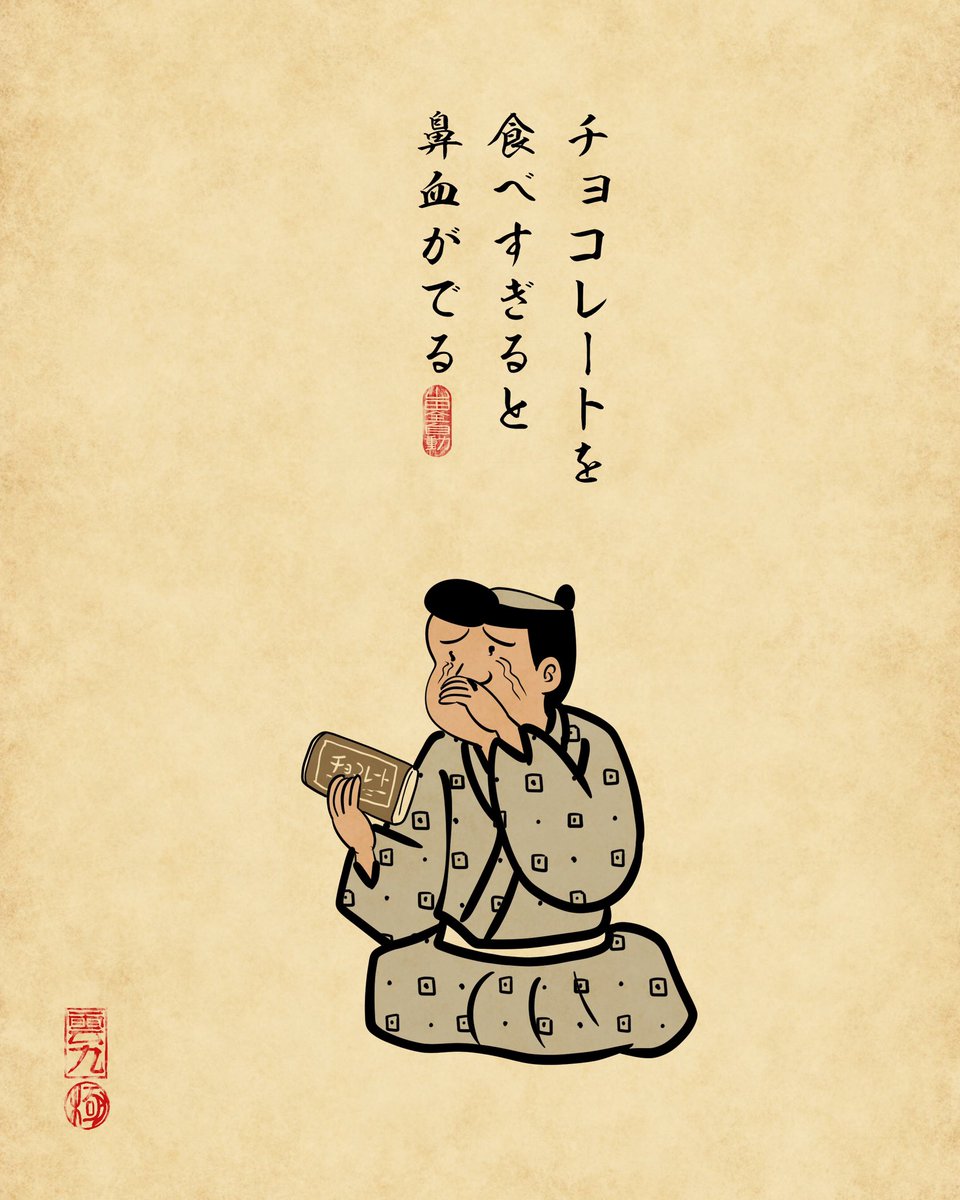 チョコレートを
食べすぎると
鼻血がでる
チョコレート